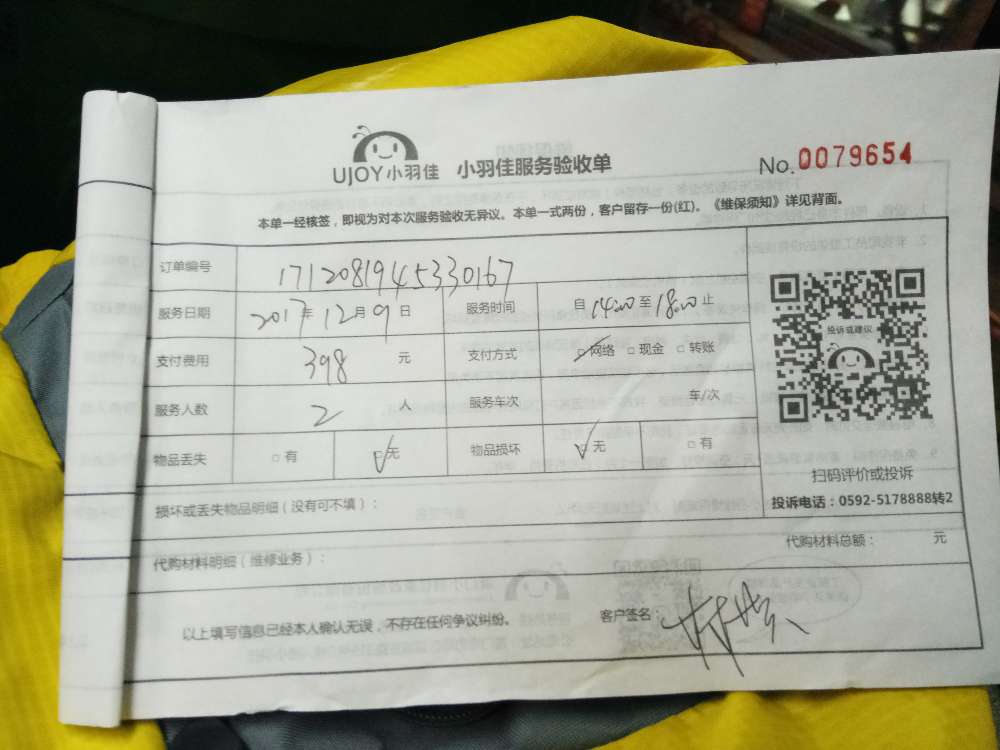 UJOY小羽佳 小羽佳服务验收单 No.0079654
本单一经核签，即视为对本次服务验收无异议。本单一式两份，客户留存一份(红)。《维保须知》详见背面。
订单编号 1712081945330167
服务日期 2017年12月9日 服务时间 自14:00至18:00止
支付费用 398 元 支付方式 □网络 □现金 □转账
服务人数 2 人 服务车次 车/次
物品丢失 □有 □无 物品损坏 □无 □有
投诉或建议
扫码评价或投诉
投诉电话：0592-5178888转2
损坏或丢失物品明细（没有可不填）：
代购材料明细（维修业务）： 代购材料总额： 元
以上填写信息已经本人确认无误，不存在任何争议纠纷。 客户签名：